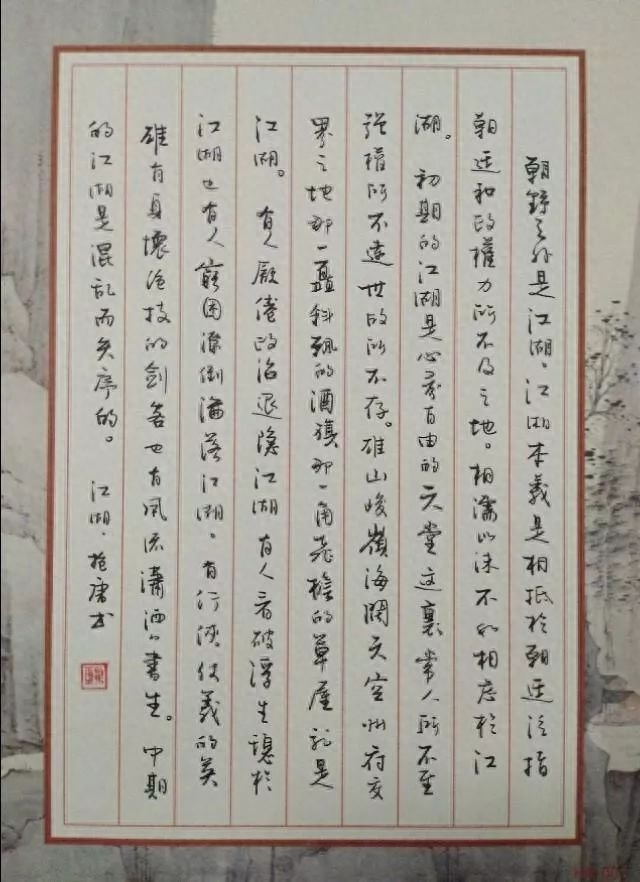 朝野之外是江湖。江湖本義是相抵於朝廷泛指
朝廷和政權力所不及之地。相濡以沫不如相忘於江
湖。初期的江湖是心灵自由的天堂这裏常人所不至
强權所不達世故所不存。雄山峻嶺海闊天空州府交
界之地那一盞斜飘的酒旗那一角飞檐的草屋就是
江湖。有人厭倦政治退隐江湖有人看破浮生隐於
江湖也有人窮困潦倒淪落江湖。有行俠仗義的英
雄有身懷绝技的劍客也有风流瀟洒书生。中期
的江湖是混乱而失序的。江湖·唐书